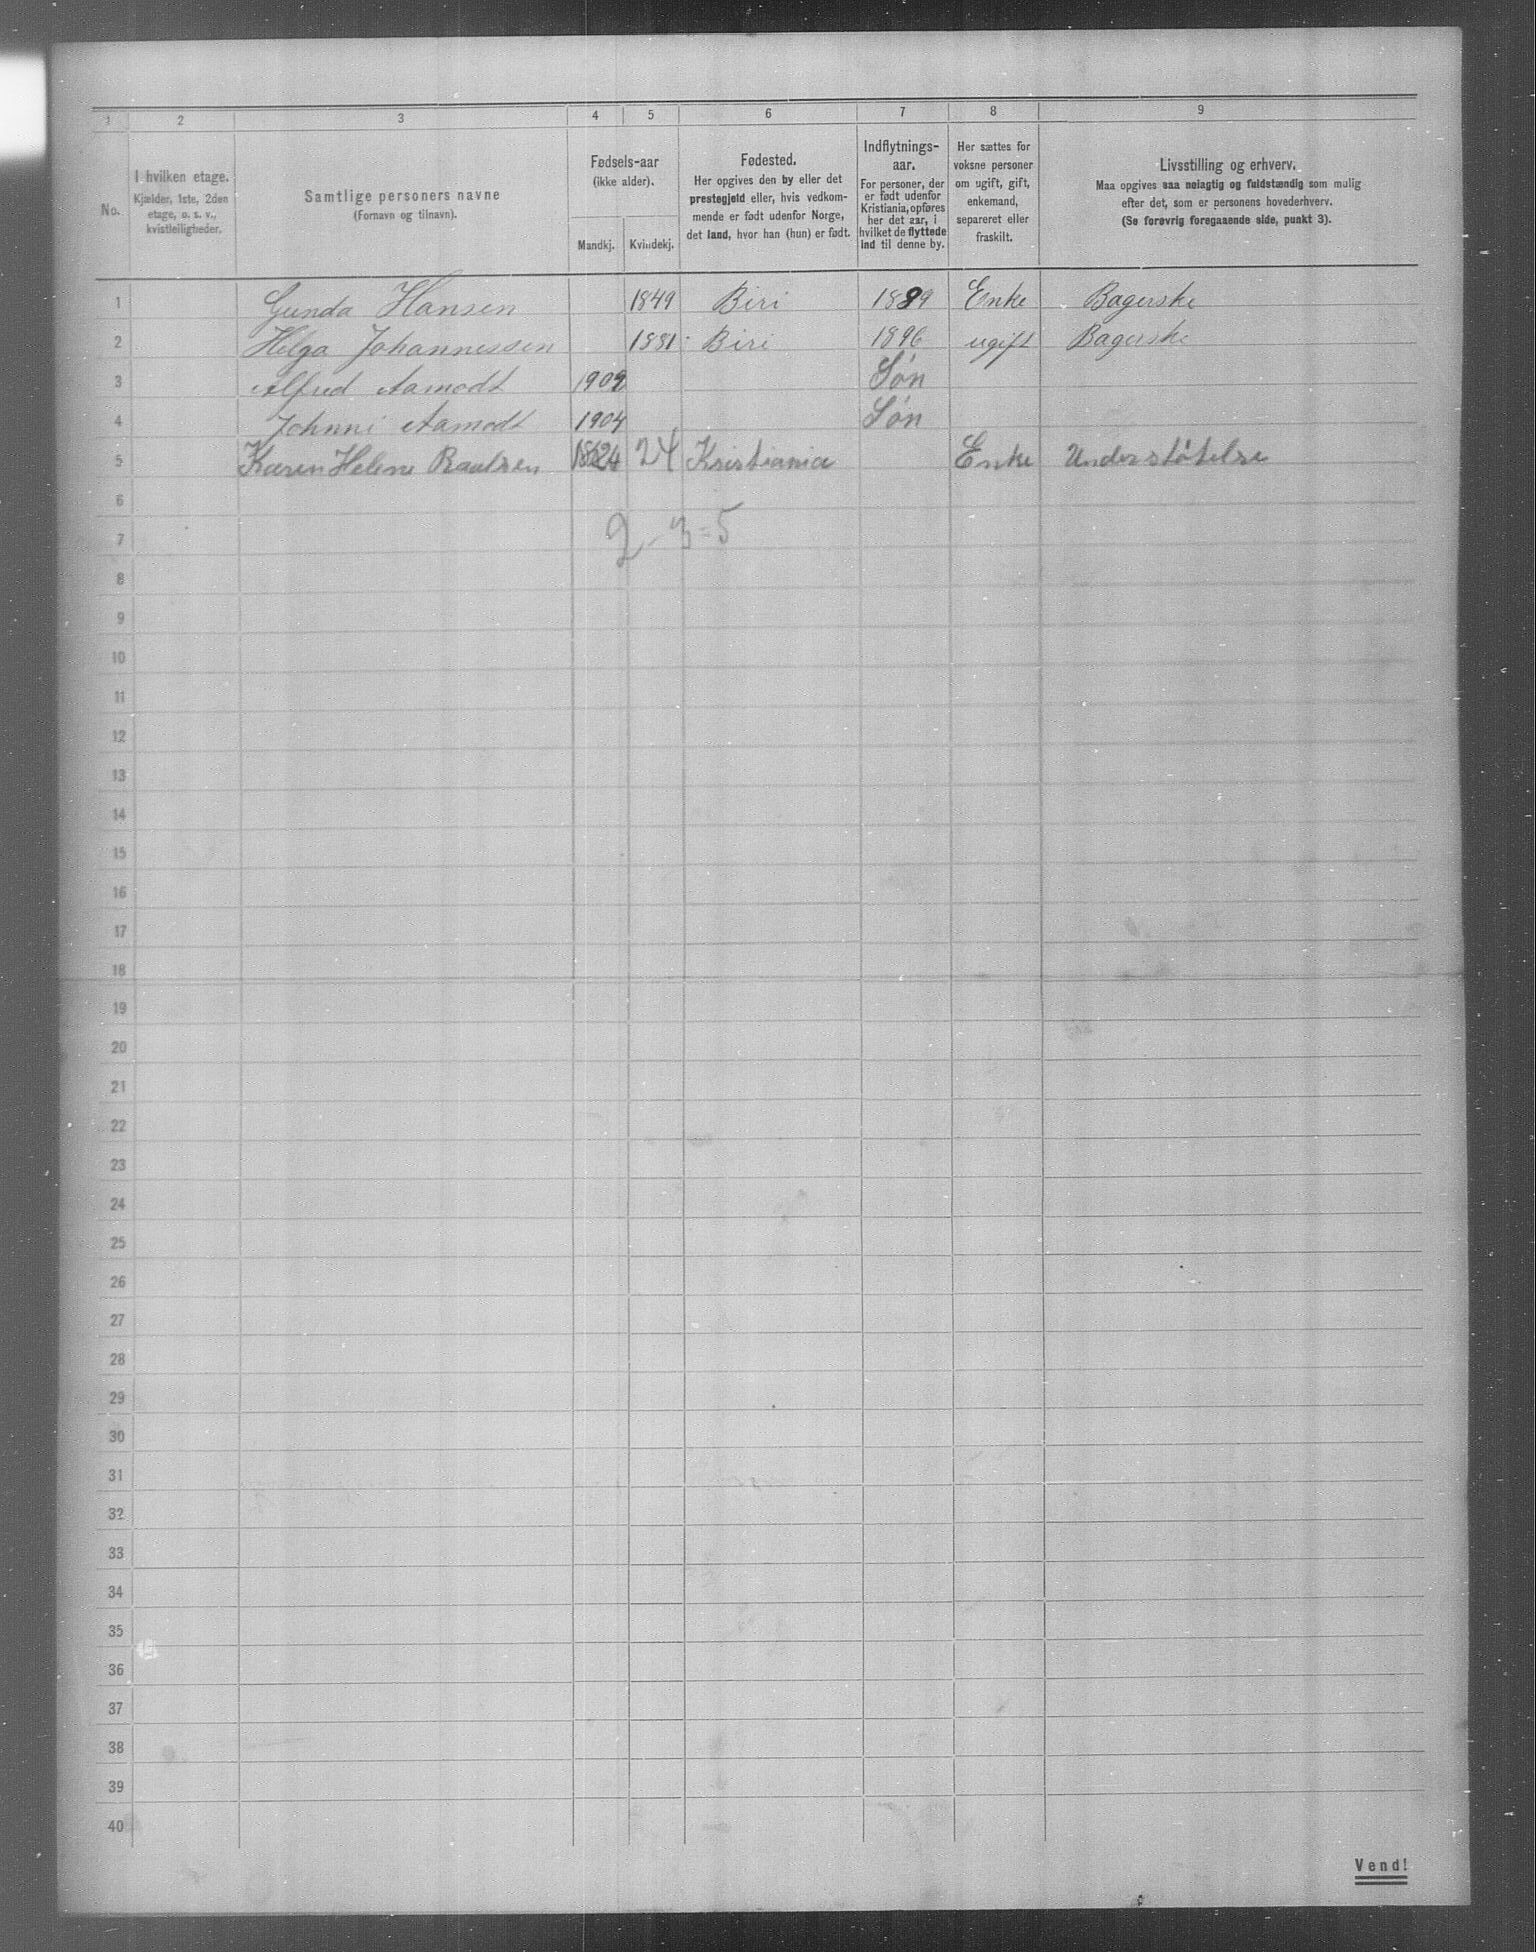 1 2 3 4 5 6 7 8 9
No.
I hvilken etage.
Kjælder, 1ste, 2den
etage, o. s. v.,
kvistleiligheder.
Samtlige personers navne
(Fornavn og tilnavn).
Fødsels-aar
(ikke alder).
Mandkj. Kvindekj.
Fødested.
Her opgives den by eller det
prestegjeld eller, hvis vedkom-
mende er født udenfor Norge,
det land, hvor han (hun) er født.
Indflytnings-
aar.
For personer, der
er født udenfor
Kristiania, opføres
her det aar, i
hvilket de flyttede
ind til denne by.
Her sættes for
voksne personer
om ugift, gift,
enkemand,
separeret eller
fraskilt.
Livsstilling og erhverv.
Maa opgives saa nøiagtig og fuldstændig som mulig
efter det, som er personens hovederhverv.
(Se forøvrig foregaaende side, punkt 3).
1 Gunda Hansen 1849 Biri 1889 Enke Bagerske
2 Helga Johannessen 1881 Biri 1896 ugift Bagerske
3 Alfred Aamodt Søn
4 Johnni Aamodt 1904 Søn
5 Karen Helene 24 Kristiania Enke Understøtelse
6
2-3=5
7
8
9
10
11
12
13
14
15
16
17
18
19
20
21
22
23
24
25
26
27
28
29
30
31
32
33
34
35
36
37
38
39
40
Vend!